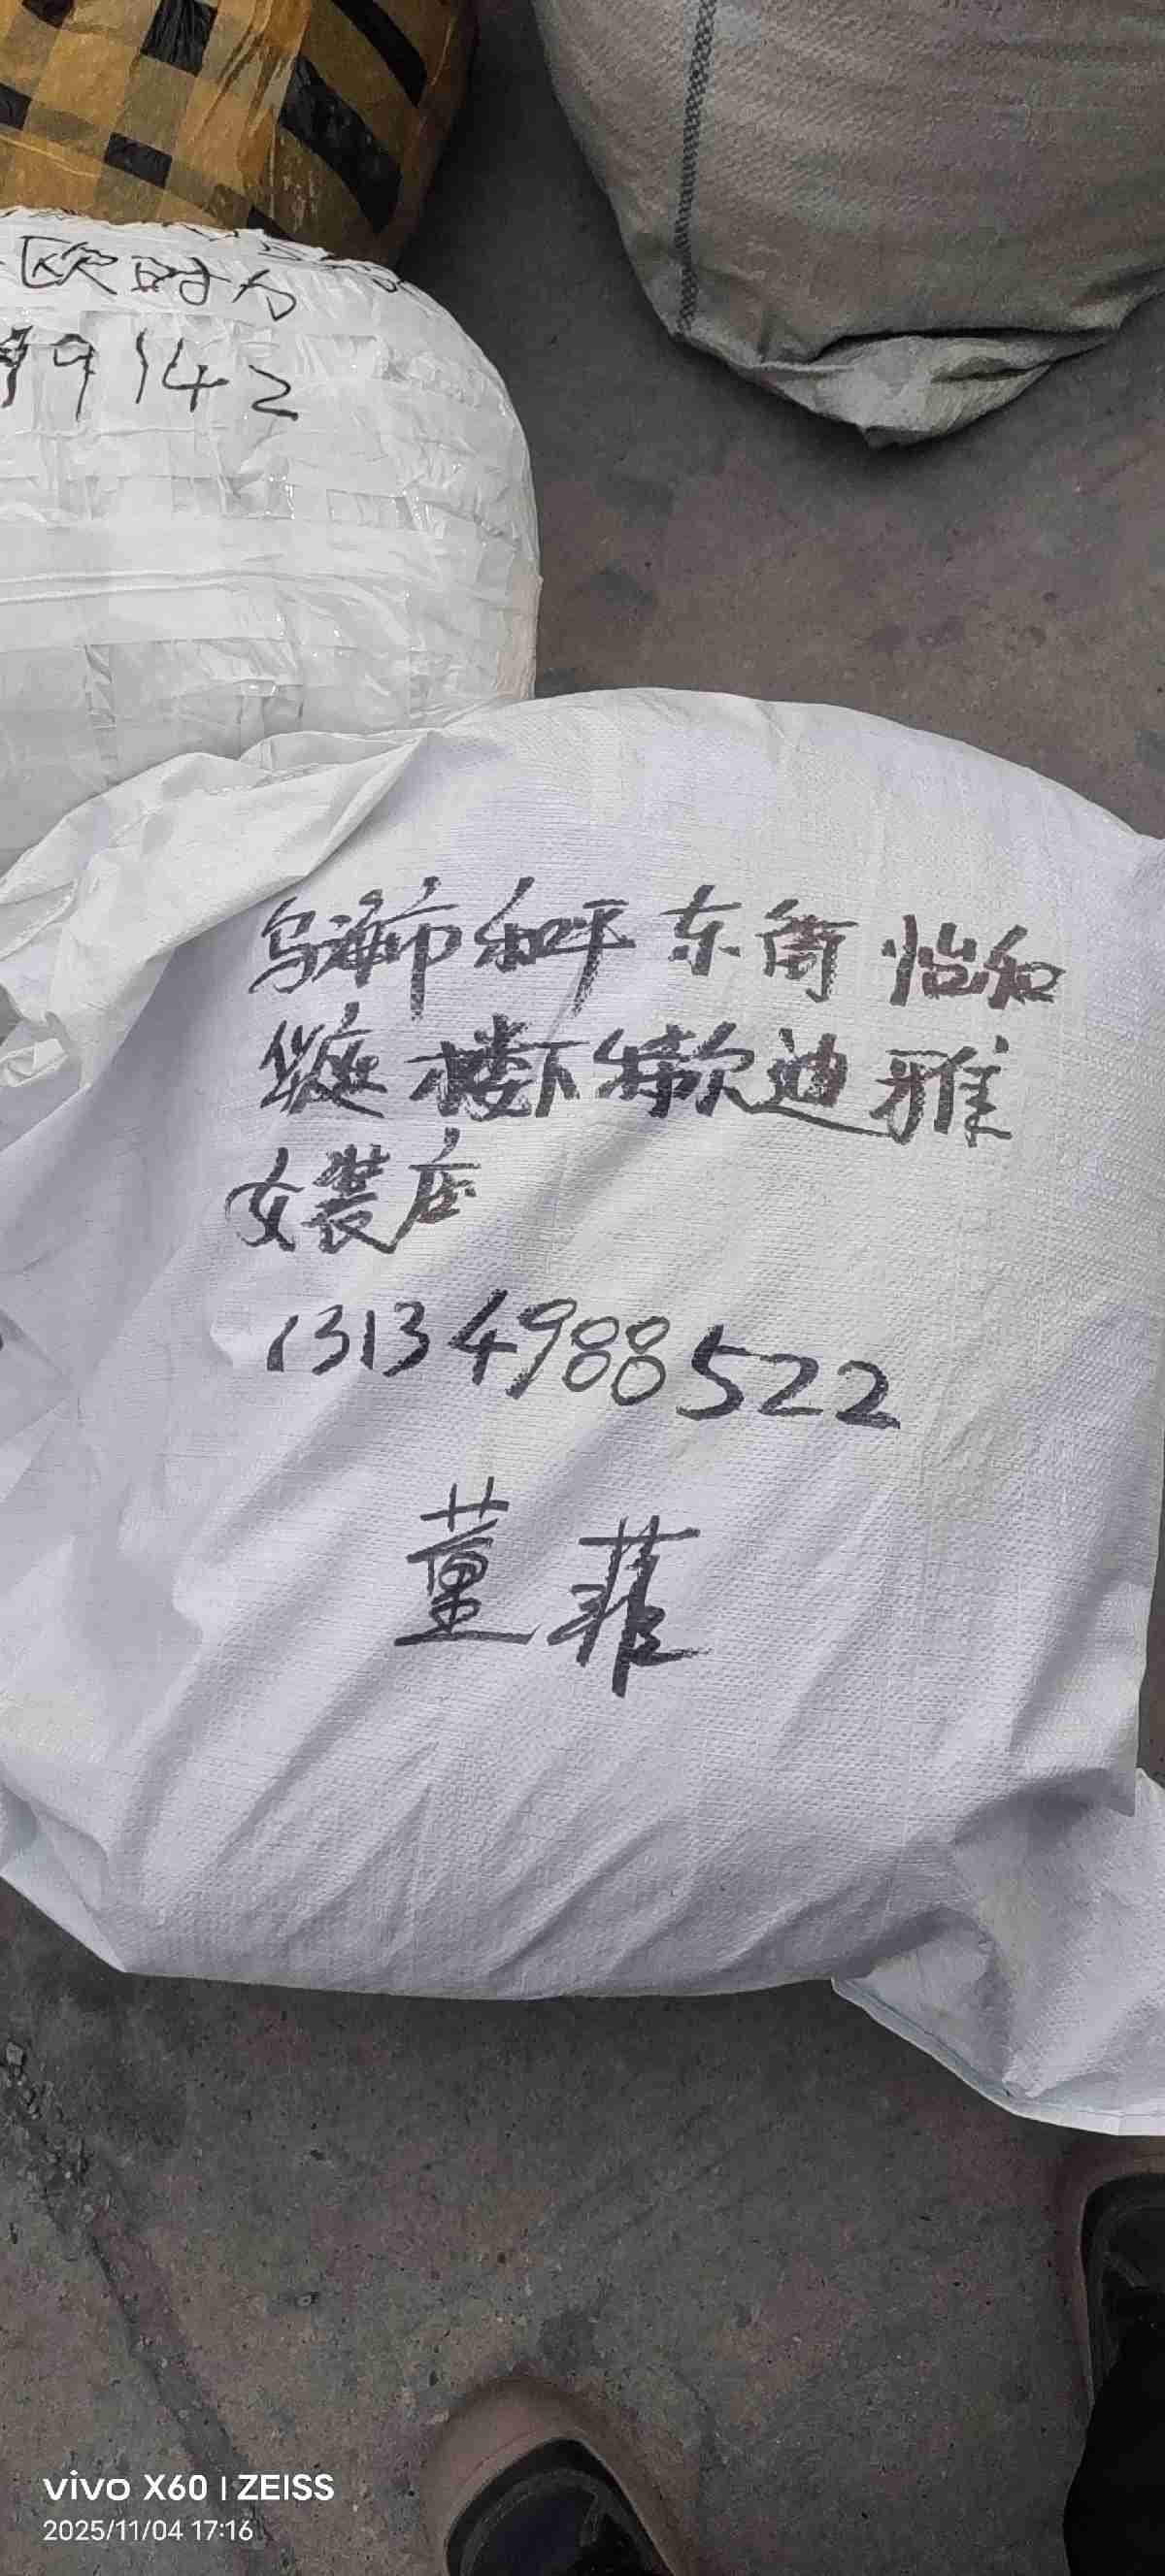 欧时力
99142
乌海市和平东街怡和
华庭楼下特欧迪雅
女装店
13134988522
董菲
vivo X60 | ZEISS
2025/11/04 17:16